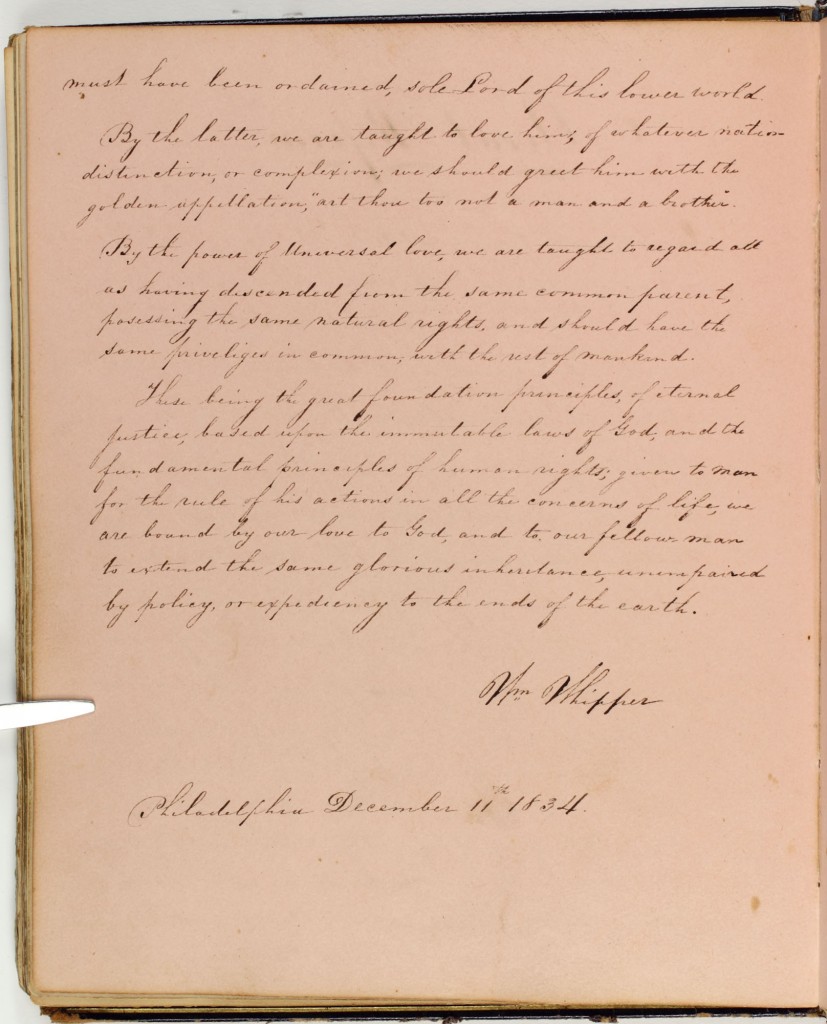 must have been ordained, sole Lord of this lower world.
By the latter, we are taught to love him, of whatever nation
distinction, or complexion; we should greet him with the
golden appellation, "art thou too not a man and a brother.
By the power of Universal love, we are taught to regard all
as having descended from the same common parent,
posessing the same natural rights, and should have the
same priveliges in common, with the rest of mankind.
These being the great foundation principles, of eternal
justice, based upon the immutable laws of God, and the
fundamental principles of human rights; given to man
for the rule of his actions in all the concerns of life, we
are bound by our love to God, and to our fellow man
to extend the same glorious inheritance, unimpaired
by policy, or expediency to the ends of the earth.
Wm Whipper
Philadelphia December 11th 1834.